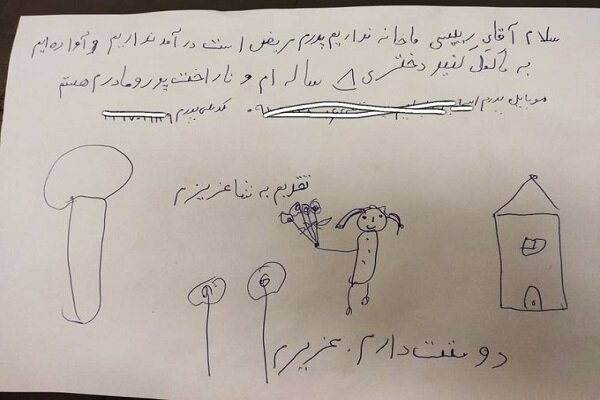 سلام آقای رییسی ما خانه نداریم پدرم مریض است درآمد نداریم و آواره‌ایم
به ما کمک کنید دختری ۸ ساله ام و ناراحت پدر و مادرم هستم
موبایل پدرم کدملی پدرم
تقدیم به شما عزیزم
دوستت دارم. عزیزم